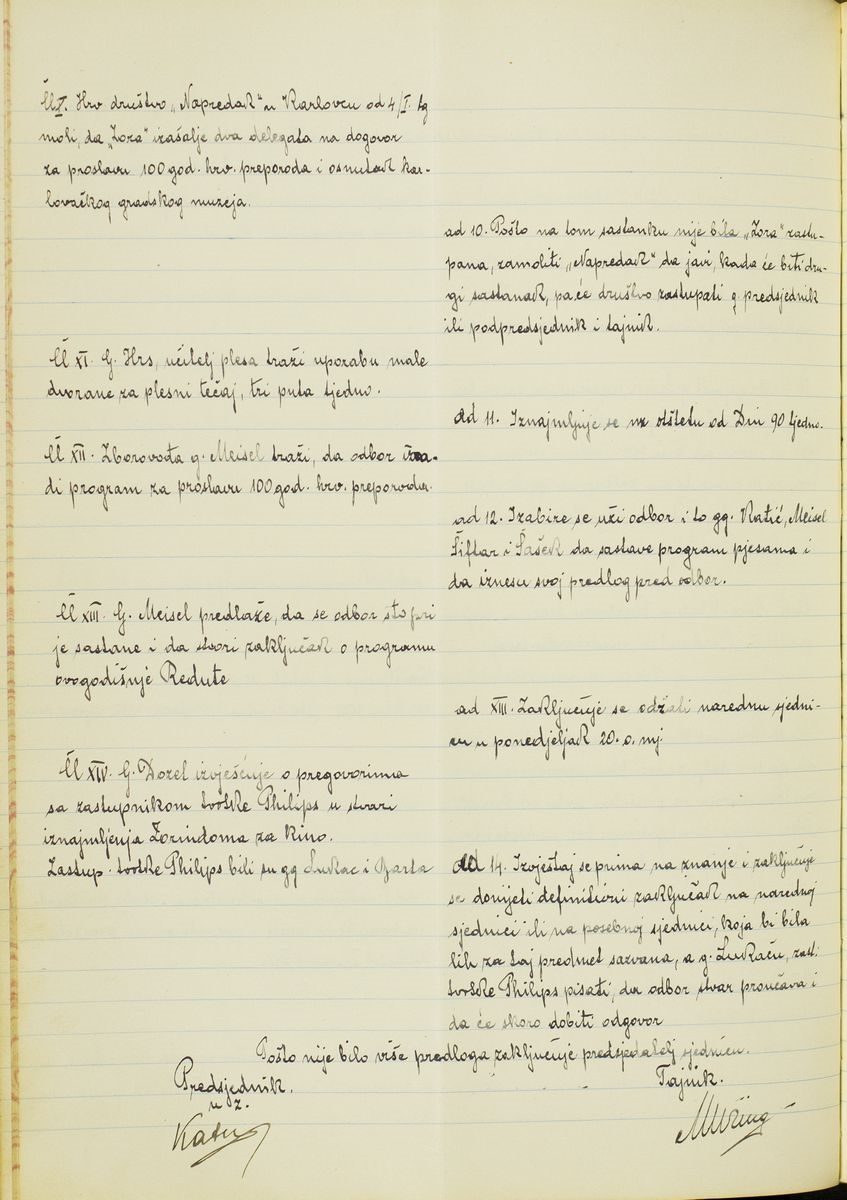 Čl X. Hrv društvo „Napredak“ u Karlovcu od 4/I. tg
moli, da „Zora“ izašalje dva delegata na dogovor
za proslavu 100 god. hrv. preporoda i osnutak kar-
lovačkog gradskog muzeja.
ad 10. Pošto na tom sastanku nije bila „Zora“ zastu-
pana, zamoliti „Napredak“ da javi, kada će biti dru-
gi sastanak, pa će društvo zastupati g. predsjednik
ili podpredsjednik i tajnik.
Čl XI. G. Hrs, učitelj plesa traži uporabu male
dvorane za plesni tečaj, tri puta tjedno.
ad 11. Iznajmljuje se uz otštetu od Din 90 tjedno.
Čl XII. Zborovođa g. Meisel traži, da odbor izra-
di program za proslavu 100 god. hrv. preporoda.
ad 12. Izabire se uži odbor i to gg. Katić, Meisel
Šiftar i Šašek da sastave program pjesama i
da iznesu svoj predlog pred odbor.
Čl XIII. G. Meisel predlaže, da se odbor što pri
je sastane i da stvori zaključak o programu
ovogodišnje Redute
ad XIII. Zaključuje se održati narednu sjedni-
cu u ponedjeljak 20. o. mj.
Čl XIV. G. Dozel izvješćuje o pregovorima
sa zastupnikom tvrtke Philips u stvari
iznajmljenja Zorindoma za kino.
Zastup. tvrtke Philips bili su gg Lukac i Barta
ad 14. Izvještaj se prima na znanje i zaključuje
se donijeti definitivni zaključak na narednoj
sjednici ili na posebnoj sjednici, koja bi bila
tih za taj predmet sazvana, a g. Lukaču, zast.
tvrtke Philips pisati, da odbor stvar proučava i
da će skoro dobiti odgovor
Pošto nije bilo više predloga zaključuje predsjedatelj sjednicu.
Predsjednik. Tajnik.
u z.